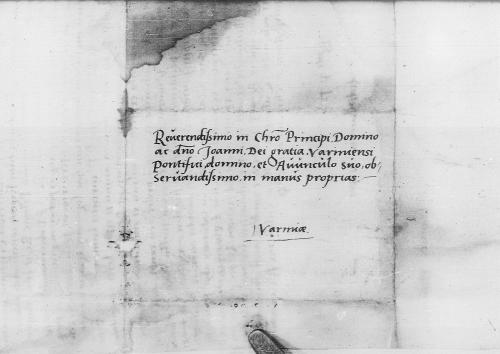 Reverendissimo in Chro Principi Domino
ac dno Joanni. Dei gratia Varmiensi
Pontifici, domino, et Avunculo suo, ob-
servandissimo. in manus proprias.
Varmiæ.